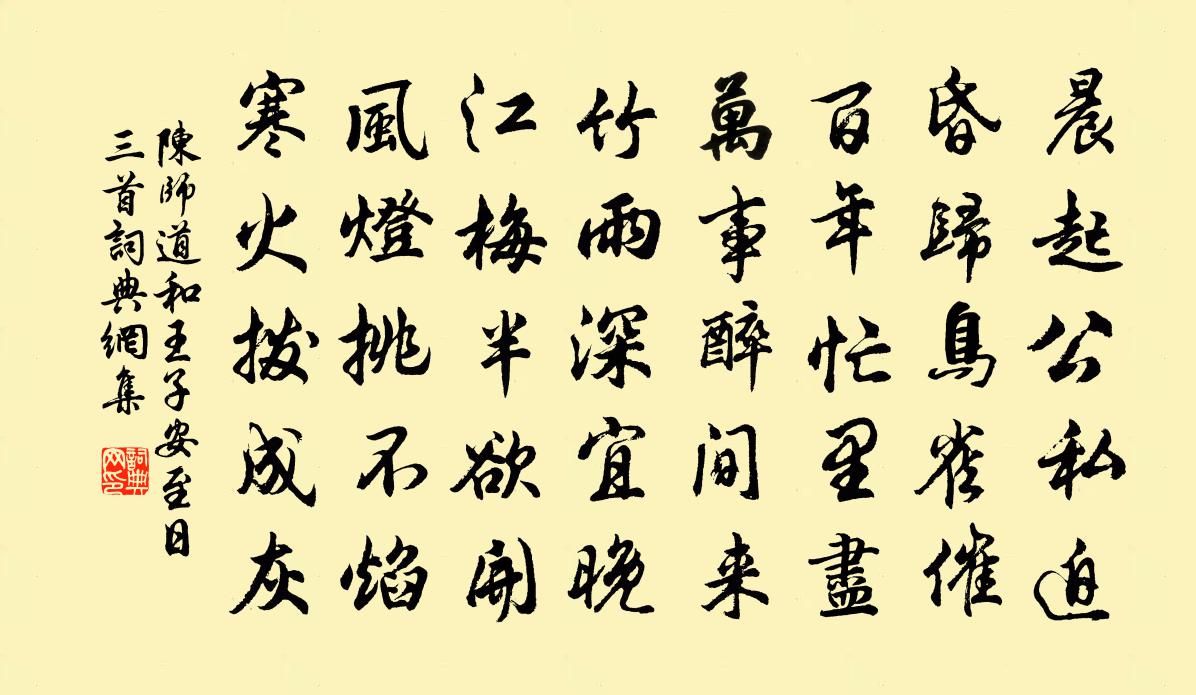 晨起公私迫
昏歸鳥雀催
百年忙里盡
萬事醉間来
竹雨深宜晚
江梅半欲開
風燈挑不焰
寒火拨成灰
陳師道和王子安至日
三首詞典網集
詞典网印